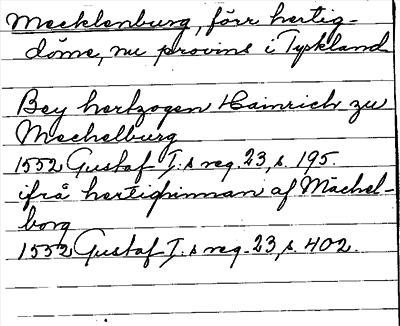 Mecklenburg, förr hertig-
döme, nu provins i Tyskland
Bey hertzogen Hainrich zu
Mechelburg
1552 Gustaf I:s reg. 23, s. 195.
ifrå hertiginnan af Mächel-
borg
1552 Gustaf I:s reg. 23, s. 402.